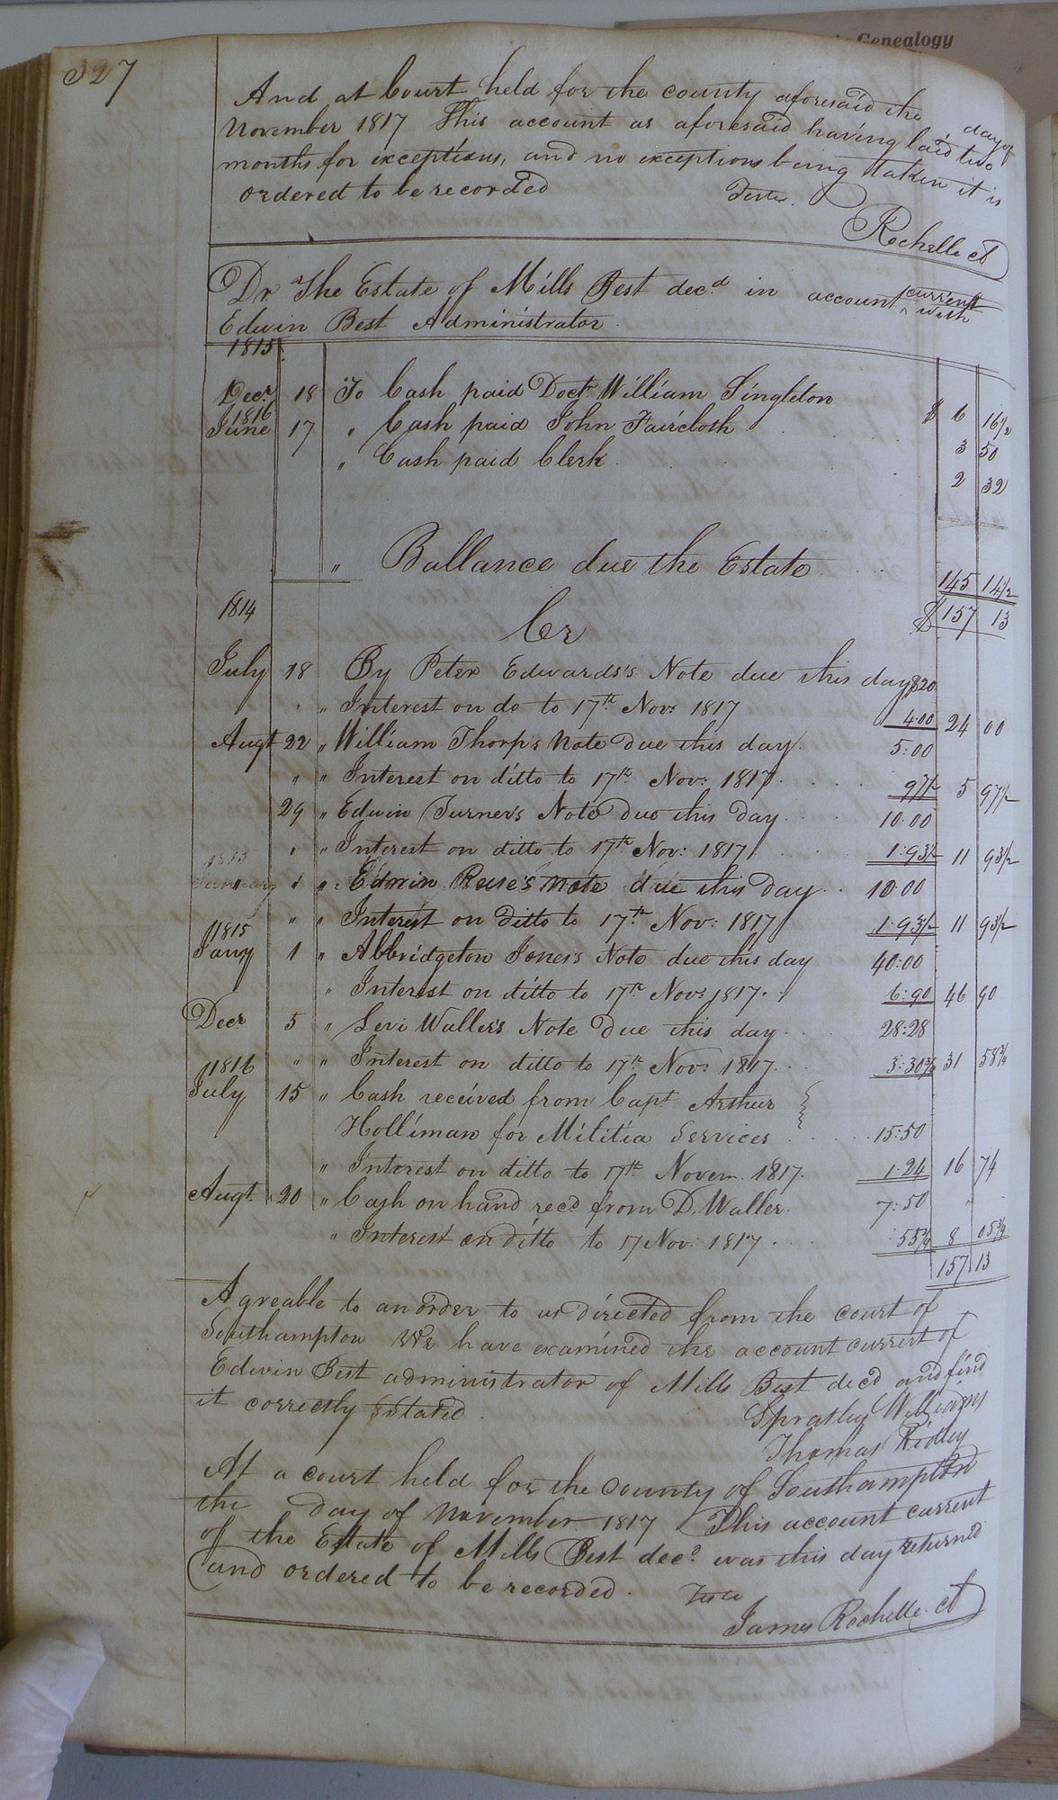 Genealogy
327
And at Court held for the county aforesaid the day of
November 1817 This account as aforesaid having laid two
months for exceptions, and no exceptions being taken it is
ordered to be recorded Teste.
Rochelle ct
Dr The Estate of Mills Best decd in account current with
Edwin Best Administrator.
1815
Decr 18 To Cash paid Doctr William Singleton $ 6 16½
1816
June 17 " Cash paid John Faircloth 3 50
" Cash paid Clerk 2 32
" Ballance due the Estate 145 14½
$ 157 13
1814
Cr
July 18 By Peter Edwards's Note due this day $20
" " Interest on do to 17th Nov: 1817 4.00 24 00
Augt 22 " William Thorp's Note Due this day. 5:00
" " Interest on ditto to 17th Nov: 1817 97½ 5 97½
29 " Edwin Turner's Note Due this Day 10.00
" " Interest on ditto to 17th Nov: 1817 1.93½ 11 93½
" " Edwin Reese's Note due this Day 10.00
" " Interest on Ditto to 17th Nov: 1817 1.93½ 11 93½
1815
Jany 1 " Abbridgeton Jones's Note due this day 40:00
" Interest on ditto to 17th Nov: 1817. 6:90 46 90
Decr 5 " Levi Waller's Note Due this day 28:28
" " Interest on ditto to 17th Nov: 1817 3:30¾ 31 58¾
1816
July 15 " Cash received from Capt Arthur
Holliman for Militia Services 15:50
" Interest on ditto to 17th Novem. 1817. 1.24 16 74
Augt. 20 " Cash on hand recd from D. Waller. 7:50
" Interest on ditto to 17 Nov: 1817 :55¾ 8 05¾
157 13
Agreable to an order to us directed from the court of
Southampton We have examined the account current of
Edwin Best administrator of Mills Best decd and find
it correctly Stated.
Spratley Williams
Thomas Ridley
At a court held for the County of Southampton
the day of November 1817 This account current
of the Estate of Mills Best decd was this day returned
and ordered to be recorded. Teste
James Rochelle. ct